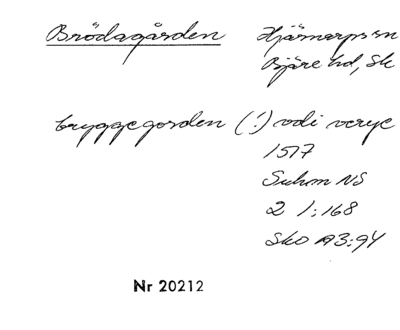 Brödagården Hjärnarps sn
Bjäre hd, Sk
bryggegorden (!) vdi verye
1517
Suhm NS
2 1:168
Sko A3:94
Nr 20212